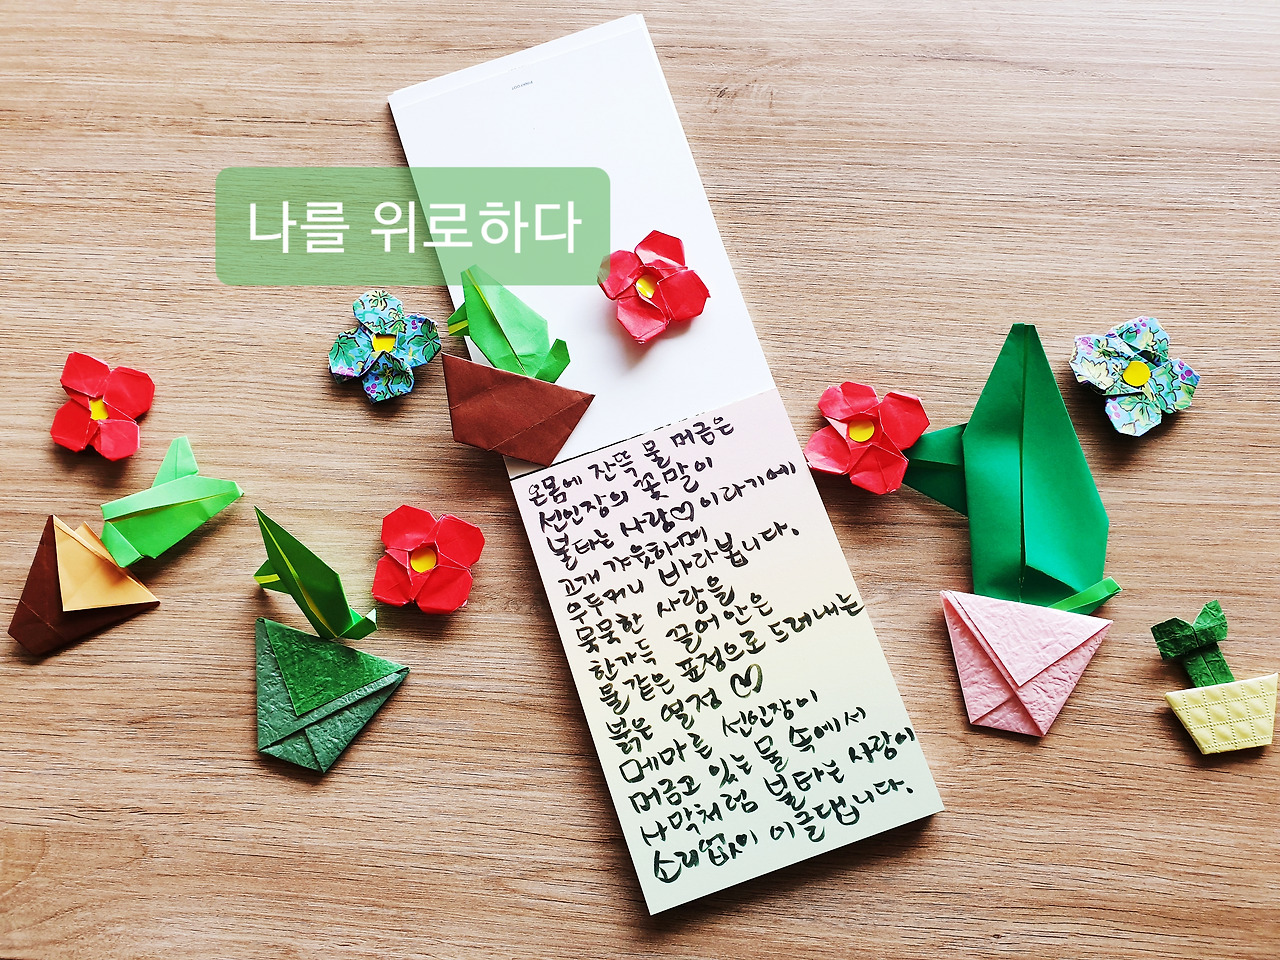 나를 위로하다
온몸에 잔뜩 물 머금은
선인장의 꽃말이
불타는 사랑♡이라기에
고개 갸웃하며
우두머니 바라봅니다.
묵묵한 사랑을
한가득 끌어안은
물같은 표정으로 드러내는
붉은 열정♡
메마른 선인장이
머금고 있는 물 속에서
사막처럼 불타는 사랑이
소리없이 이글댑니다.